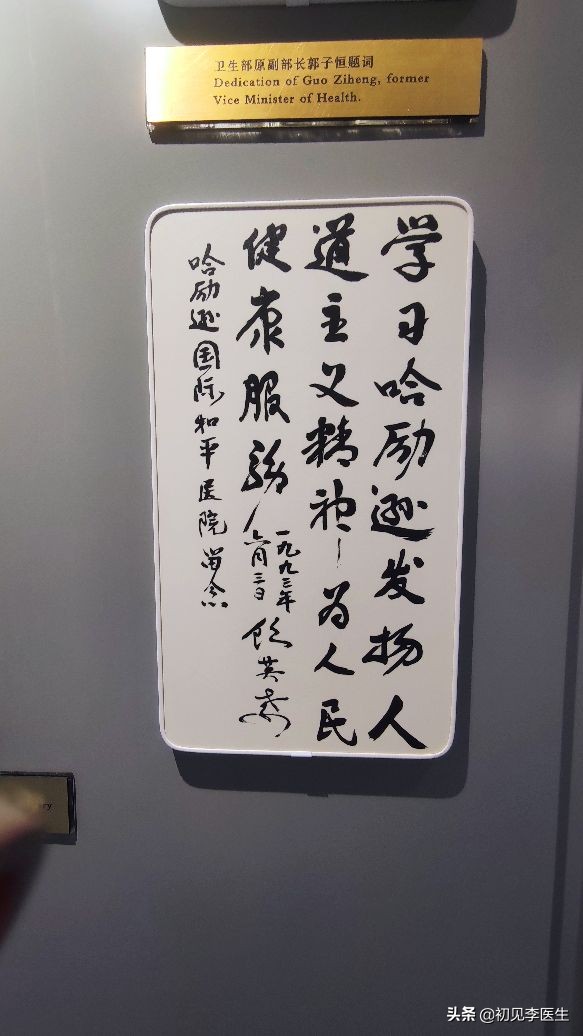 卫生部原副部长郭子恒题词
Dedication of Guo Ziheng, former
Vice Minister of Health.
学习哈励逊发扬人
道主义精神为人民
健康服务
一九九三年
六月三日
英
哈励逊国际和平医院留念
ry
头条 @初见李医生